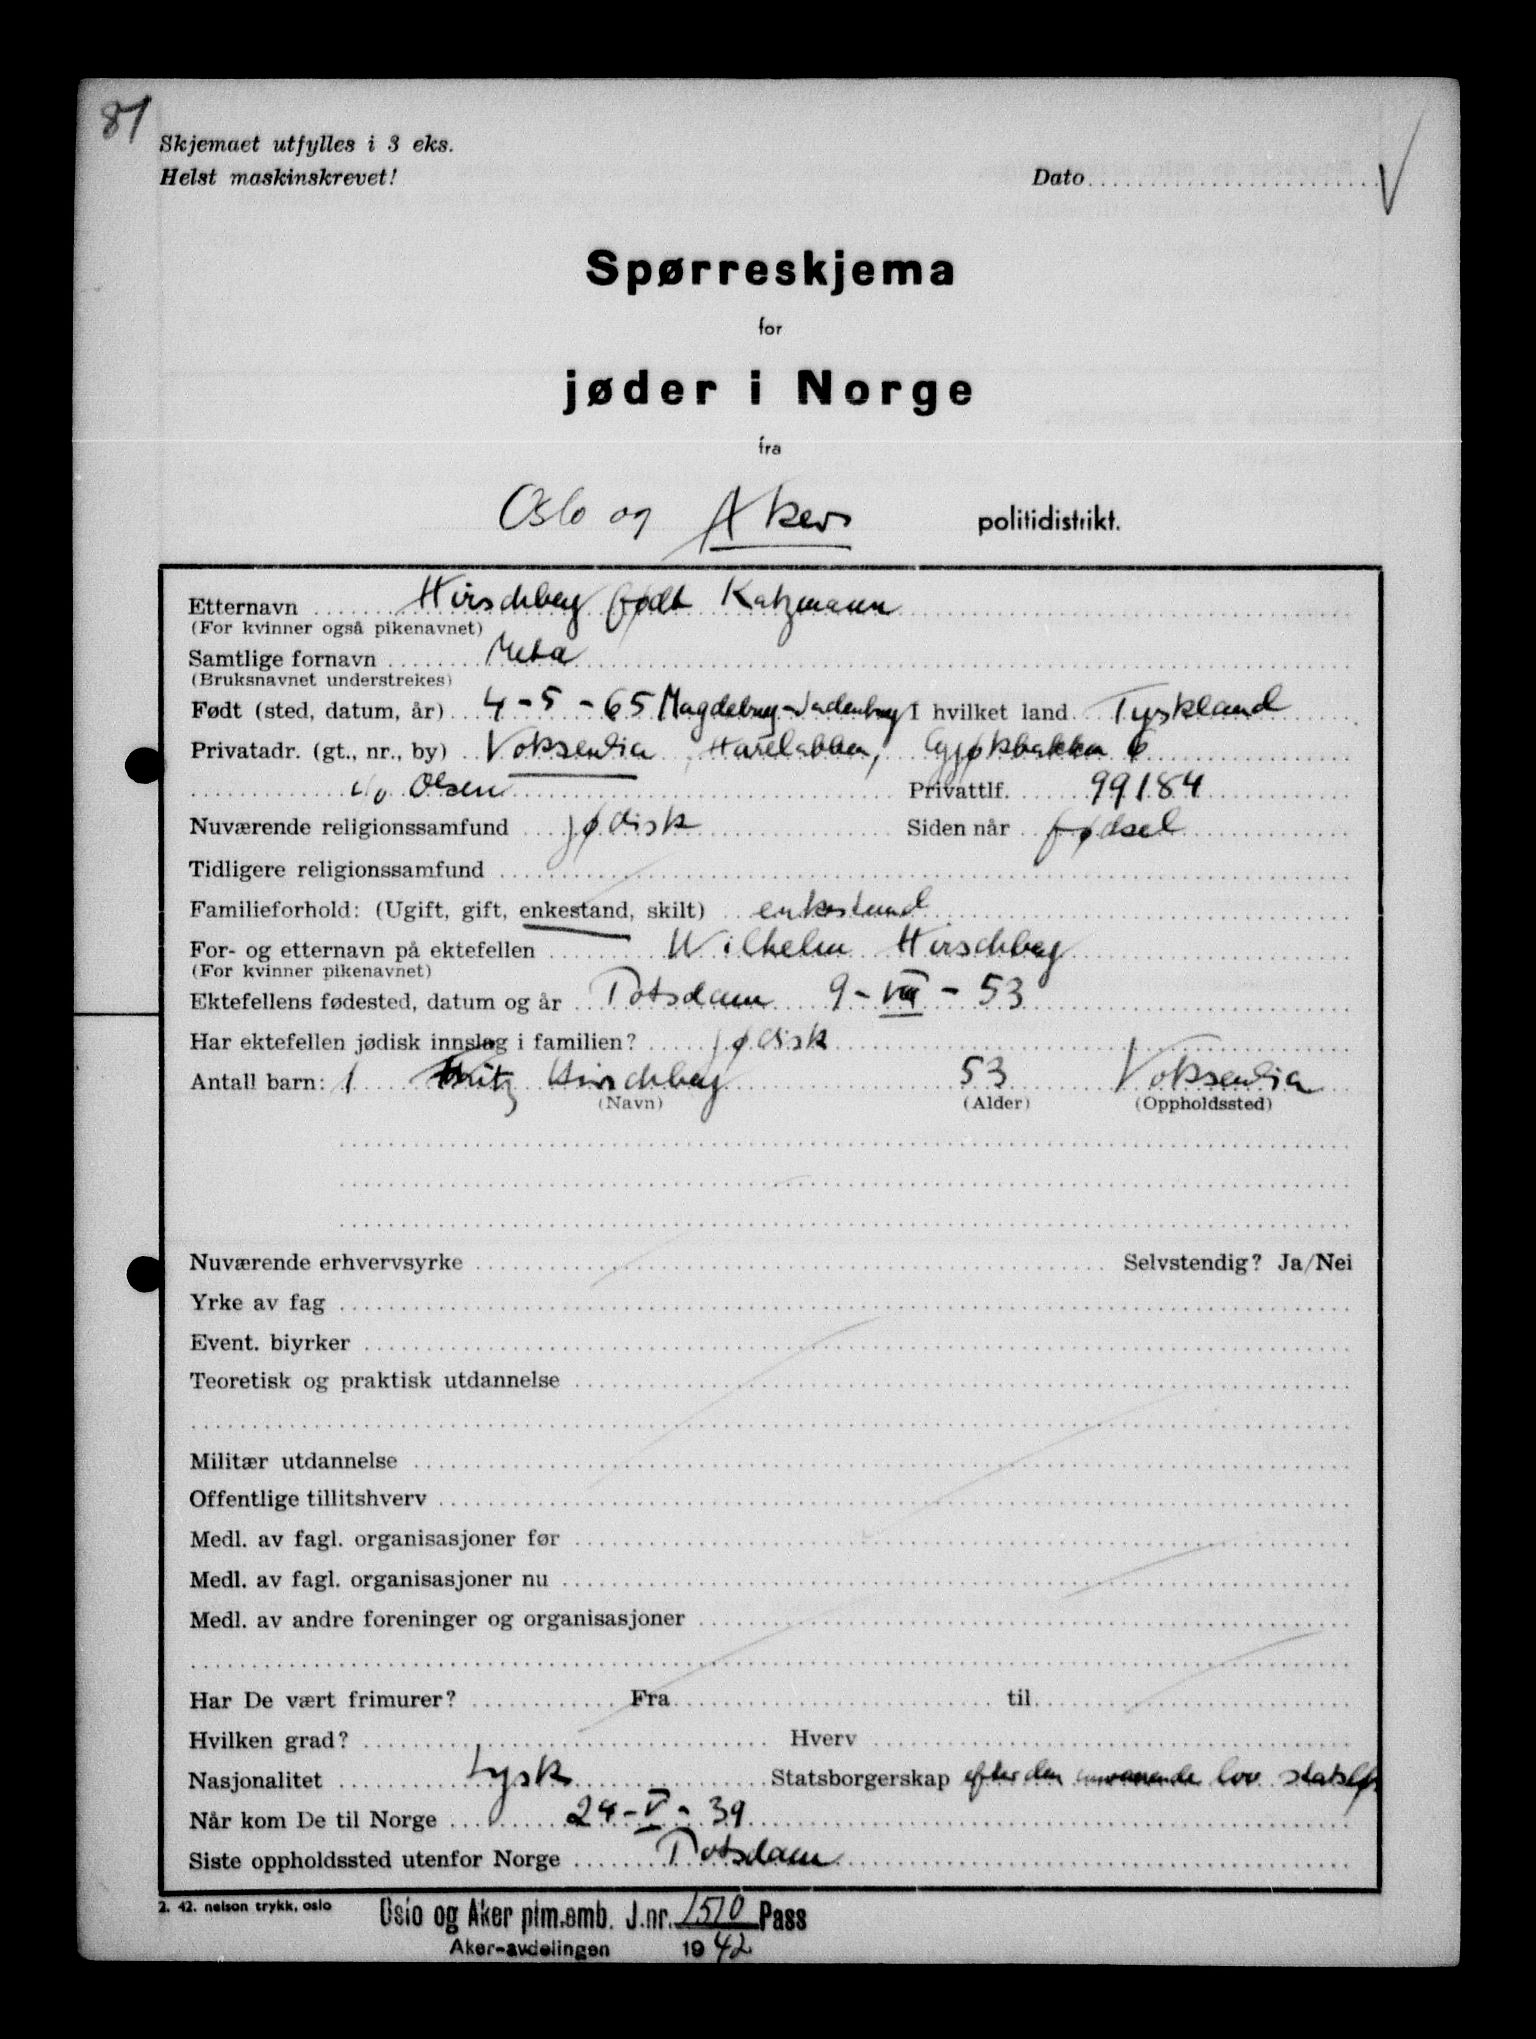 81
Skjemaet utfylles i 3 eks.
Helst maskinskrevet!
Dato
Spørreskjema
for
jøder i Norge
fra
Oslo og Akers politidistrikt.
Etternavn Hirschberg født Katzmann
(For kvinner også pikenavnet)
Samtlige fornavn Meta
(Bruksnavnet understrekes)
Født (sted, datum, år) 4-5-65 Magdeburg- I hvilket land Tyskland
Privatadr. (gt., nr., by) Voksenlia, Harelabben, Gjøkbakken 6
c/o Olsen Privattlf. 99184
Nuværende religionssamfund jødisk Siden når fødsel
Tidligere religionssamfund
Familieforhold: (Ugift, gift, enkestand, skilt) enkestand
For- og etternavn på ektefellen Wilhelm Hirschberg
(For kvinner pikenavnet)
Ektefellens fødested, datum og år Potsdam 9-VIII-53
Har ektefellen jødisk innslag i familien? jødisk
Antall barn: 1 Fritz Hirschberg 53 Voksenlia
(Navn) (Alder) (Oppholdssted)
Nuværende erhvervsyrke Selvstendig? Ja/Nei
Yrke av fag
Event. biyrker
Teoretisk og praktisk utdannelse
Militær utdannelse
Offentlige tillitshverv
Medl. av fagl. organisasjoner før
Medl. av fagl. organisasjoner nu
Medl. av andre foreninger og organisasjoner
Har De vært frimurer? Fra til
Hvilken grad? Hverv
Nasjonalitet tysk Statsborgerskap efter den lov statsløs
Når kom De til Norge 24-V-39
Siste oppholdssted utenfor Norge Potsdam
2. 42. nelson trykk, oslo
Oslo og Aker ptm.omb. J.nr. 1510 Pass
Aker-avdelingen 1942